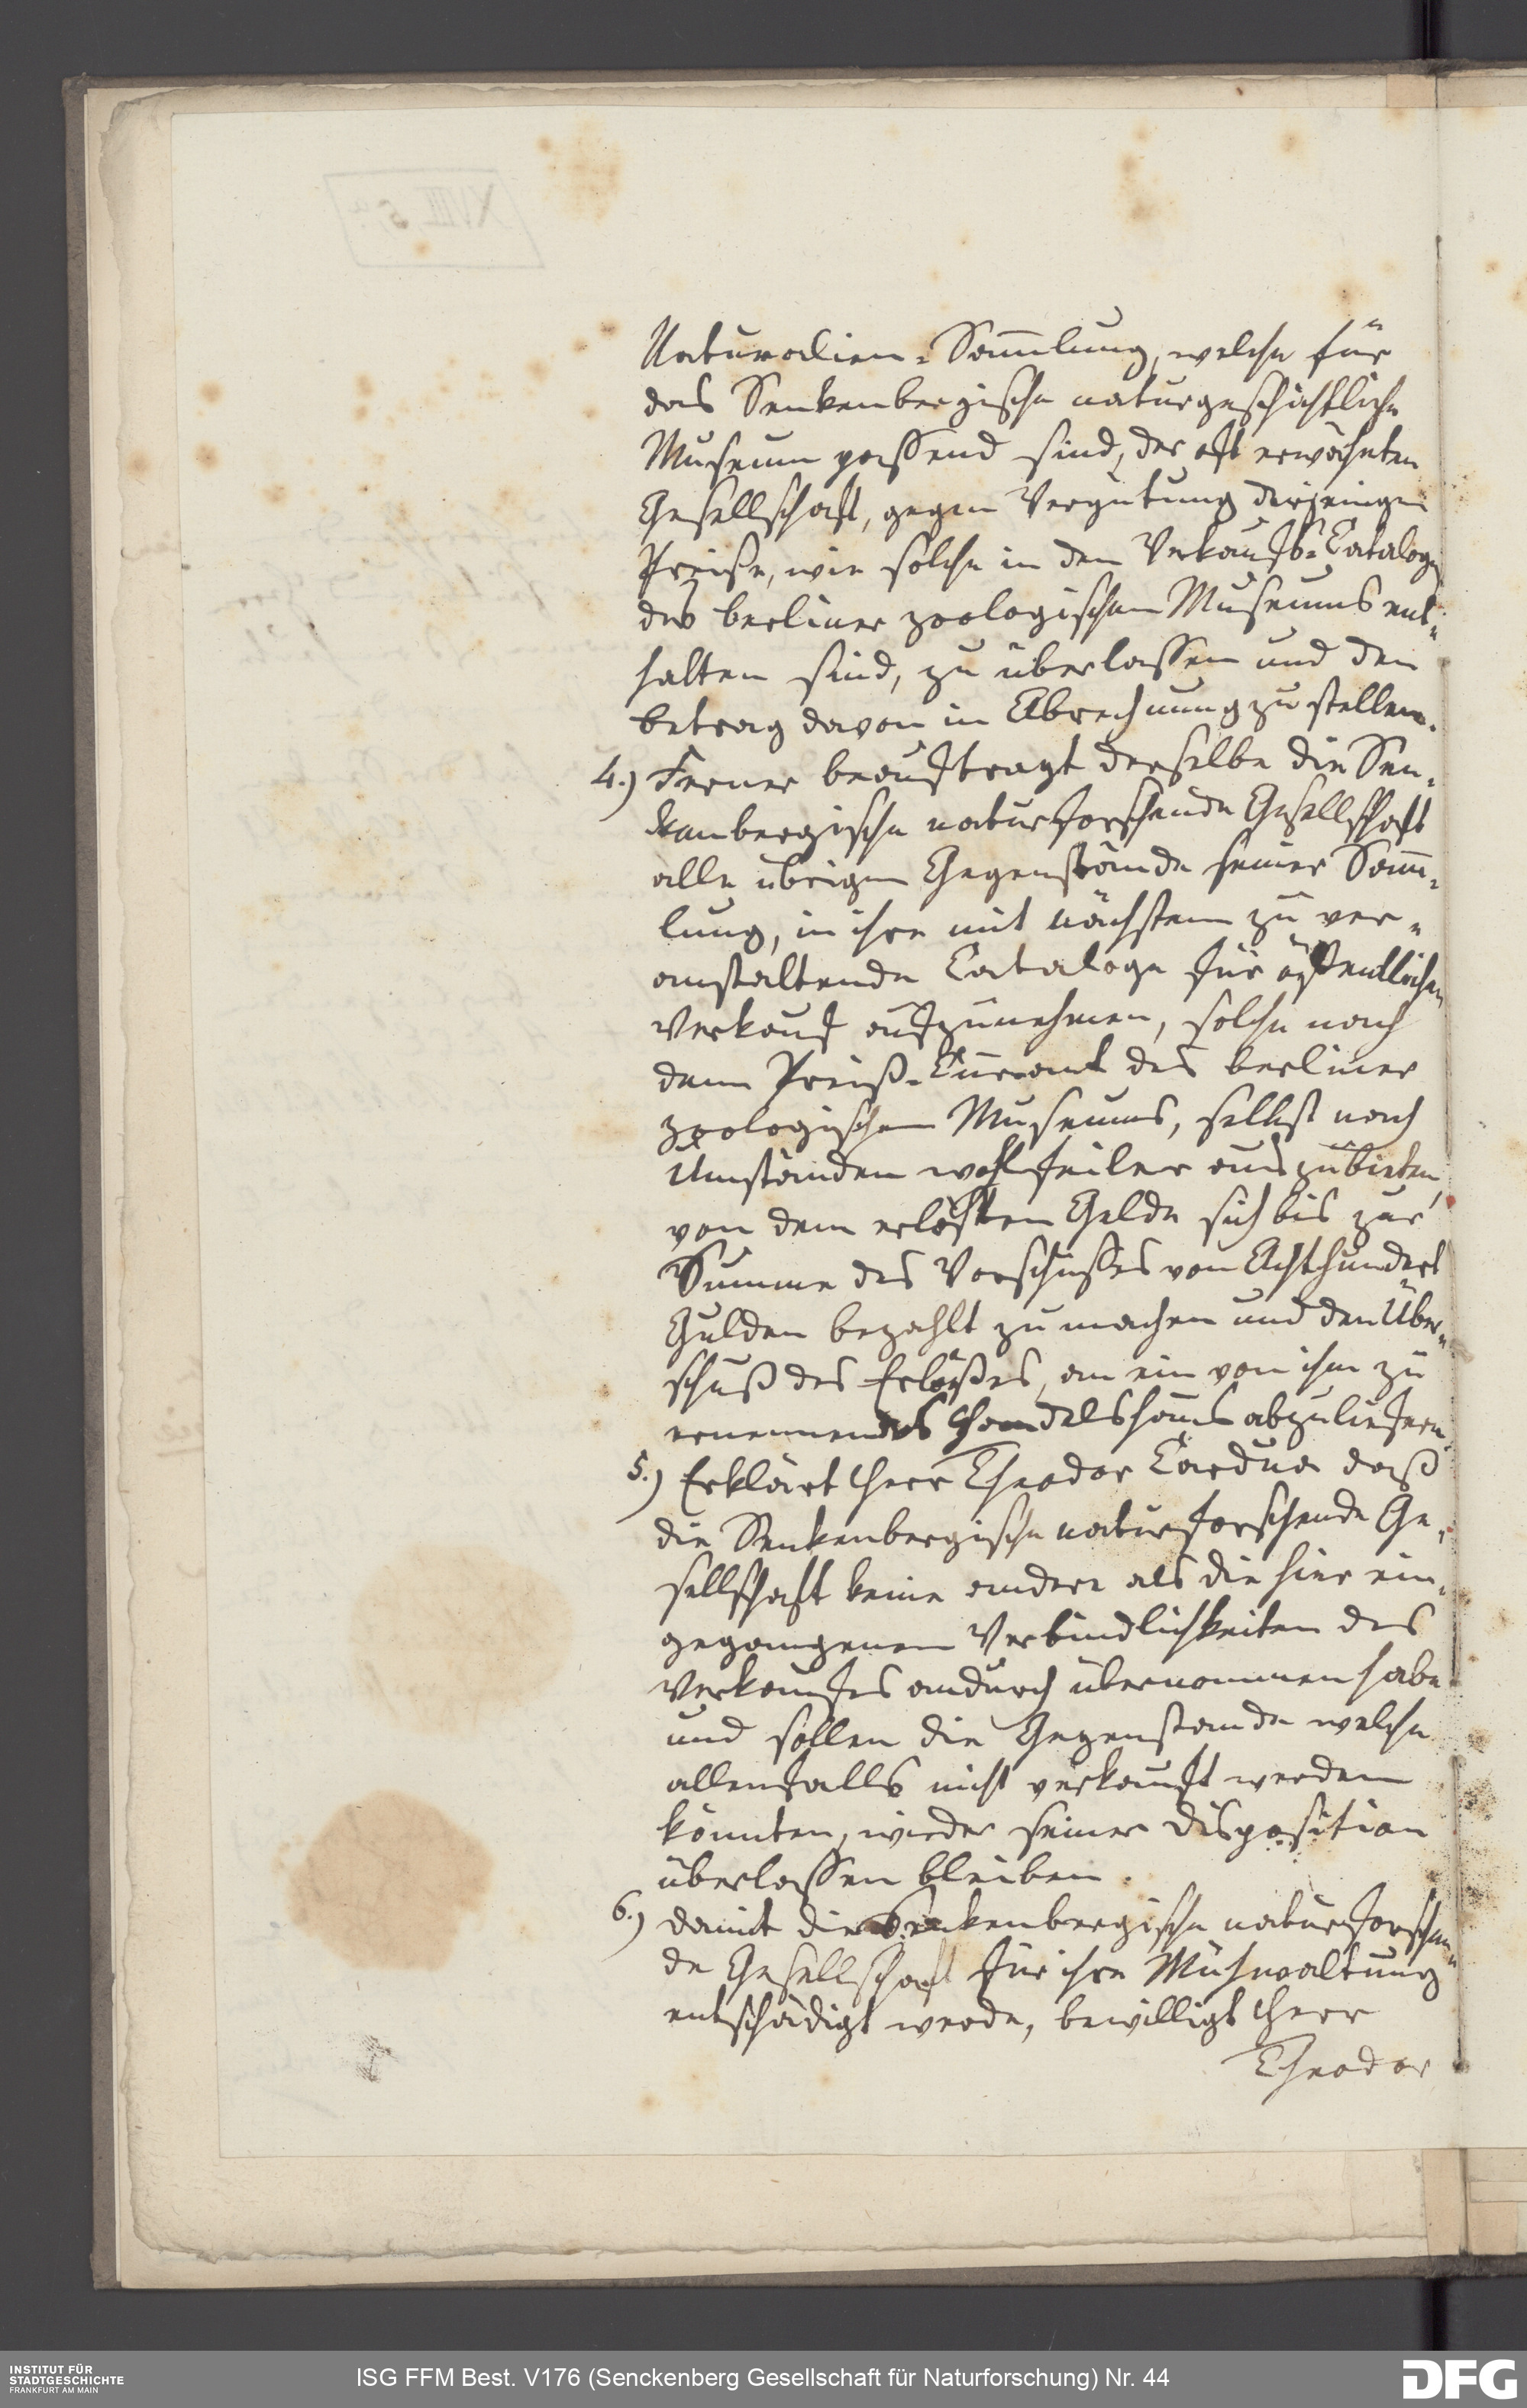 Naturalien-Sammlung, welche für
das Senkenbergische naturgeschichtliche
Museum passend sind, der oft erwähnten
Gesellschaft, gegen Vergütung derjenigen
Preiße, wie solche in den Verkaufs-Catalogen
des berliner zoologischen Museums ent-
halten sind, zu überlassen und den
betrag davon in Abrechnung zu stellen.
4.) Ferner beauftragt derselbe die Sen-
kenbergische naturforschende Gesellschaft
alle übrigen Gegenstände seiner Samm-
lung, in ihre mit nächstem zu ver-
anstaltende Cataloge für öffentlichen
Verkauf aufzunehmen, solche nach
dem Preiß-Currant des berliner
zoologischen Museums, selbst nach
Umständen wohlfeiler auszubieten,
von dem erlößten Gelde sich bis zur
Summe des Vorschusses von Achthundert
Gulden bezahlt zu machen und den Über-
schuß des Erlößes, an ein von ihm zu
ernennendes Handelshaus abzuliefern.
5.) Erklärt Herr Theodor Cardua daß
die Senkenbergische naturforschende Ge-
sellschaft keine andere als die hier ein-
gegangenen Verbindlichkeiten des
Verkaufes andurch übernommen habe
und sollen die Gegenstande welche
allenfalls nicht verkauft werden
könnten, wieder seiner disposition
überlassen bleiben.
6.) damit die Senkenbergische naturforschen-
de Gesellschaft für ihre Mühwaltung
entschädigt werde, bewilligt Herr
Theodor
XVIII. 5.
INSTITUT FÜR
STADTGESCHICHTE
FRANKFURT AM MAIN
ISG FFM Best. V176 (Senckenberg Gesellschaft für Naturforschung) Nr. 44
DFG